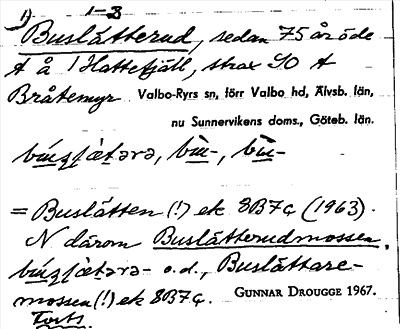 1) 1-3
Buslätterud, sedan 75 år öde
t å 1 Hattefjäll, strax SO t
Bråtemyr Valbo-Ryrs sn, förr Valbo hd, Älvsb. län,
nu Sunnervikens doms., Göteb. län.
= Buslätten (!) ek 8B7ç (1963).
N därom Buslätterudmossen,
o.d., Buslättare-
mossen (!) ek 8B7ç. GUNNAR DROUGGE 1967.
Torts.